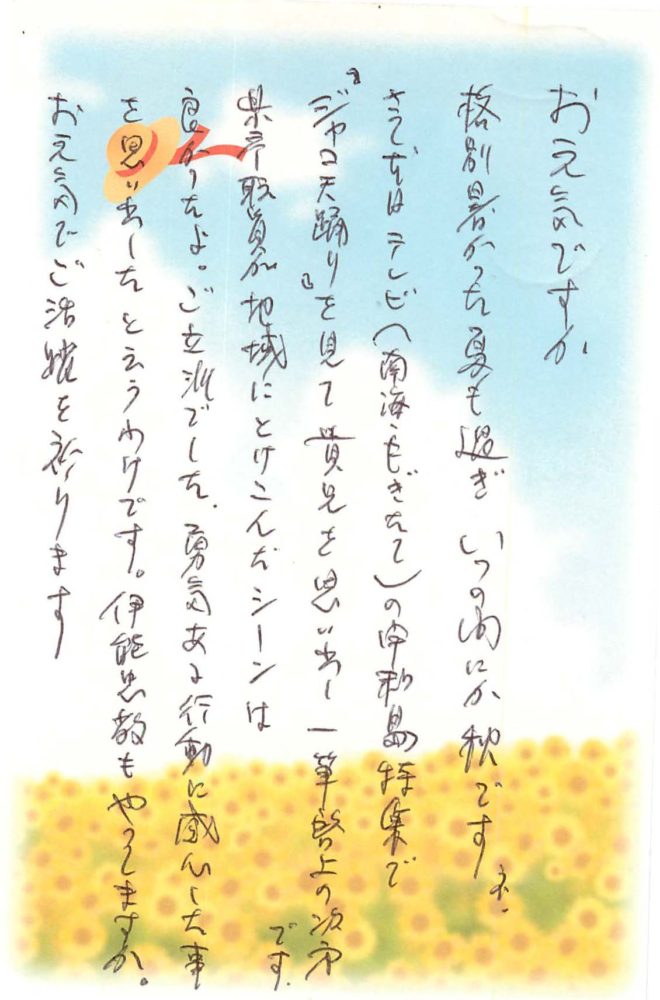 お元気ですか
格別暑かった夏も過ぎ いつの間にか秋ですネ.
さて本日はテレビ(南海もぎたて)の中利島特集で
『ジャコ天踊り』を見て貴兄を思い出し一筆啓上の次第です.
県庁職員が地域にとけこんだシーンは
良かったよ。ご立派でした.勇気ある行動に感心した事
を思い出したと云うわけです。伊能忠敬もやってますか。
お元気でご活躍を祈ります